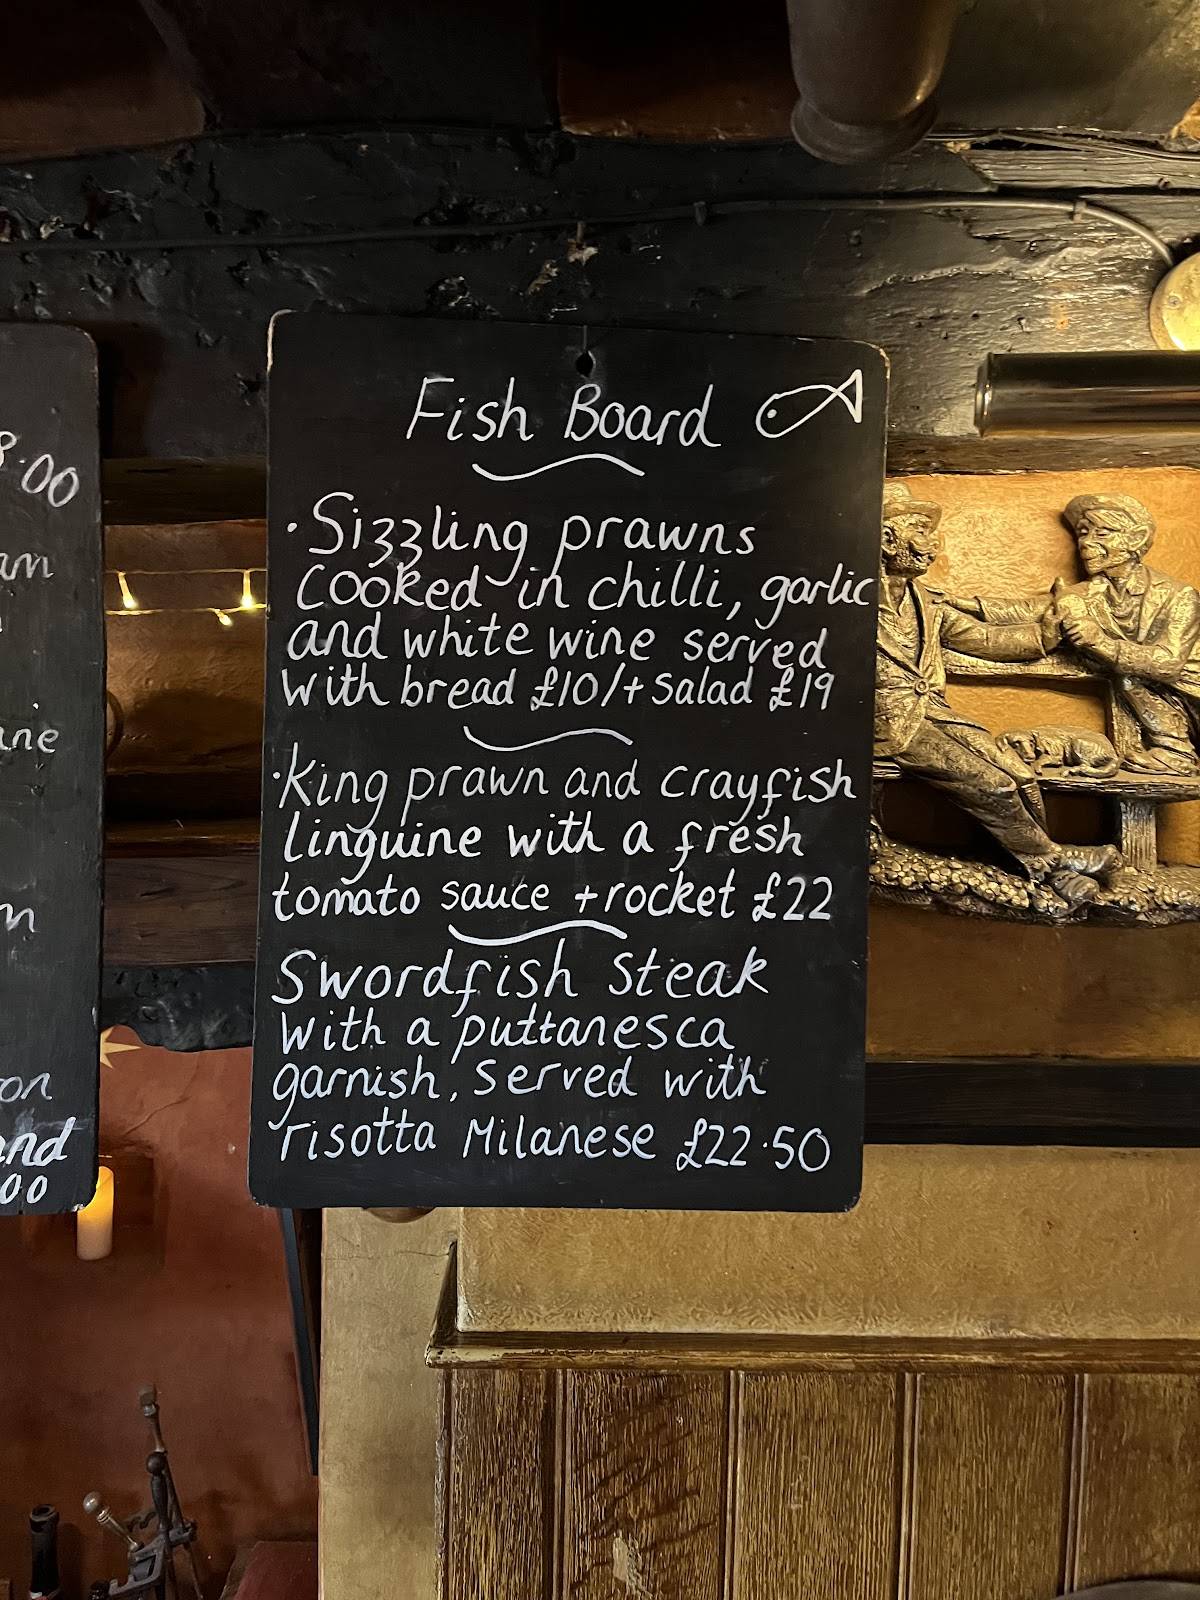 Fish Board
·Sizzling prawns
cooked in chilli, garlic
and white wine served
with bread £10/+salad £19
·King prawn and crayfish
linguine with a fresh
tomato sauce +rocket £22
Swordfish steak
with a puttanesca
garnish, served with
risotta Milanese £22.50
8.00
am
ine
on
and
00